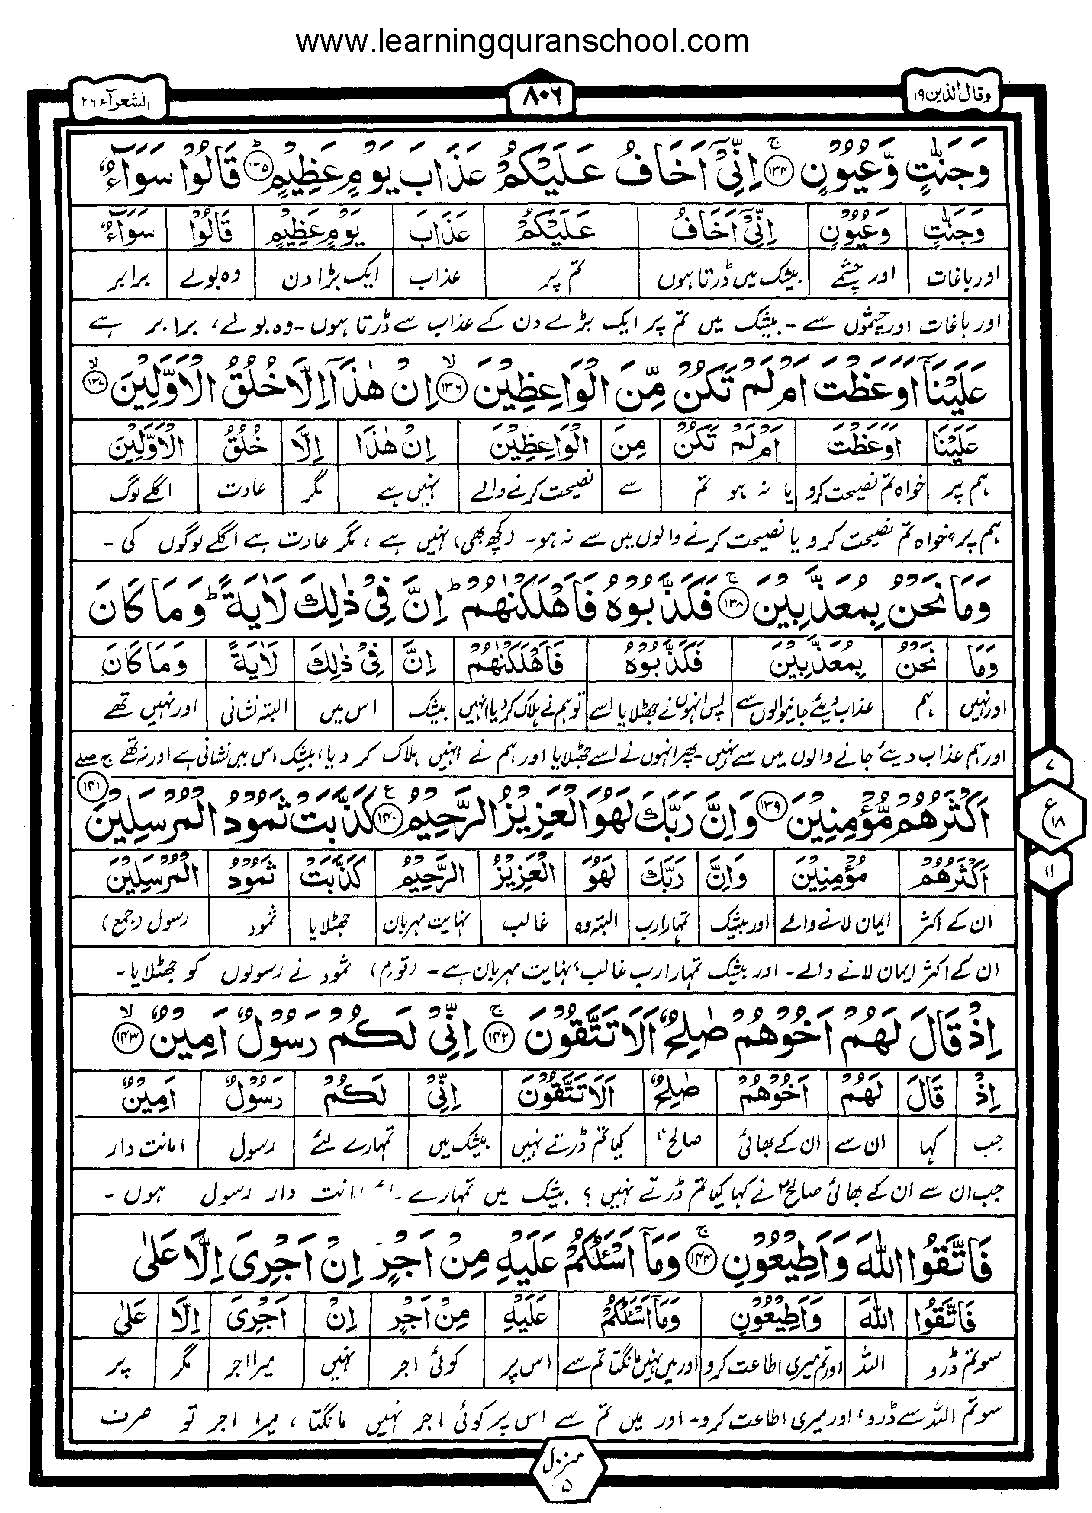 www.learningquranschool.com
وقال الذین ۱۹
۸۰۶
الشعرآء ۲۶
وَجَنّٰتٍ وَّعُیُوْنٍ ﴿۱۳۴﴾ۚ اِنِّیْۤ اَخَافُ عَلَیْكُمْ عَذَابَ یَوْمٍ عَظِیْمٍ ﴿۱۳۵﴾ؕ قَالُوْا سَوَآءٌ
وَجَنّٰتٍ وَّعُیُوْنٍ اِنِّیْۤ اَخَافُ عَلَیْكُمْ عَذَابَ یَوْمٍ عَظِیْمٍ قَالُوْا سَوَآءٌ
اور باغات اور چشمے بیشک میں ڈرتا ہوں تم پر عذاب ایک بڑا دن وہ بولے برابر
اور باغات اور چشموں سے ۔ بیشک میں تم پر ایک بڑے دن کے عذاب سے ڈرتا ہوں ۔ وہ بولے، برابر ہے
عَلَیْنَاۤ اَوَعَظْتَ اَمْ لَمْ تَكُنْ مِّنَ الْوَاعِظِیْنَ ﴿۱۳۶﴾ۙ اِنْ هٰذَاۤ اِلَّا خُلُقُ الْاَوَّلِیْنَ ﴿۱۳۷﴾ۙ
عَلَیْنَا اَوَعَظْتَ اَمْ لَمْ تَكُنْ مِنَ الْوَاعِظِیْنَ اِنْ هٰذَا اِلَّا خُلُقُ الْاَوَّلِیْنَ
ہم پر خواہ تم نصیحت کرو یا نہ ہو تم سے نصیحت کرنے والے نہیں ہے مگر عادت اگلے لوگ
ہم پر خواہ تم نصیحت کرو یا نصیحت کرنے والوں میں سے نہ ہو ۔ (کچھ بھی) نہیں ہے ، مگر عادت ہے اگلے لوگوں کی ۔
وَمَا نَحْنُ بِمُعَذَّبِیْنَ ﴿۱۳۸﴾ۚ فَكَذَّبُوْهُ فَاَهْلَكْنٰهُمْ ؕ اِنَّ فِیْ ذٰلِكَ لَاٰیَةً ؕ وَمَا كَانَ
وَمَا نَحْنُ بِمُعَذَّبِیْنَ فَكَذَّبُوْهُ فَاَهْلَكْنٰهُمْ اِنَّ فِیْ ذٰلِكَ لَاٰیَةً وَمَا كَانَ
اور نہیں ہم عذاب دیئے جانیوالوں سے پس انہوں نے جھٹلایا اسے تو ہم نے ہلاک کردیا انہیں بیشک اس میں البتہ نشانی اور نہیں تھے
اور ہم عذاب دیئے جانے والوں میں سے نہیں ۔ پھر انہوں نے اسے جھٹلایا اور ہم نے انہیں ہلاک کر دیا، بیشک اس میں نشانی ہے اور نہ تھے
اَكْثَرُهُمْ مُّؤْمِنِیْنَ ﴿۱۳۹﴾ وَاِنَّ رَبَّكَ لَهُوَ الْعَزِیْزُ الرَّحِیْمُ ﴿۱۴۰﴾ كَذَّبَتْ ثَمُوْدُ الْمُرْسَلِیْنَ ﴿۱۴۱﴾
اَكْثَرُهُمْ مُؤْمِنِیْنَ وَاِنَّ رَبَّكَ لَهُوَ الْعَزِیْزُ الرَّحِیْمُ كَذَّبَتْ ثَمُوْدُ الْمُرْسَلِیْنَ
ان کے اکثر ایمان لانے والے اور بیشک تمہارا رب البتہ وہ غالب نہایت مہربان جھٹلایا ثمود رسول (جمع)
ان کے اکثر ایمان لانے والے ۔ اور بیشک تمہارا رب غالب، نہایت مہربان ہے ۔ (قوم) ثمود نے رسولوں کو جھٹلایا ۔
اِذْ قَالَ لَهُمْ اَخُوْهُمْ صٰلِحٌ اَلَا تَتَّقُوْنَ ﴿۱۴۲﴾ۚ اِنِّیْ لَكُمْ رَسُوْلٌ اَمِیْنٌ ﴿۱۴۳﴾ۙ
اِذْ قَالَ لَهُمْ اَخُوْهُمْ صٰلِحٌ اَلَا تَتَّقُوْنَ اِنِّیْ لَكُمْ رَسُوْلٌ اَمِیْنٌ
جب کہا ان سے ان کے بھائی صالحؑ کیا تم ڈرتے نہیں بیشک میں تمہارے لئے رسول امانت دار
جب ان سے ان کے بھائی صالحؑ نے کہا کیا تم ڈرتے نہیں ؟ بیشک میں تمہارے امانت دار رسول ہوں ۔
فَاتَّقُوا اللّٰهَ وَاَطِیْعُوْنِ ﴿۱۴۴﴾ۚ وَمَاۤ اَسْـَٔلُكُمْ عَلَیْهِ مِنْ اَجْرٍ اِنْ اَجْرِیَ اِلَّا عَلٰی
فَاتَّقُوا اللّٰهَ وَاَطِیْعُوْنِ وَمَا اَسْـَٔلُكُمْ عَلَیْهِ مِنْ اَجْرٍ اِنْ اَجْرِیَ اِلَّا عَلٰی
سو تم ڈرو اللہ اور تم میری اطاعت کرو اور میں نہیں مانگتا تم سے اس پر کوئی اجر نہیں میرا اجر مگر پر
سو تم اللہ سے ڈرو، اور میری اطاعت کرو ۔ اور میں تم سے اس پر کوئی اجر نہیں مانگتا ، میرا اجر تو صرف
۷
ع
۱۸
۱۱
منزل
۵